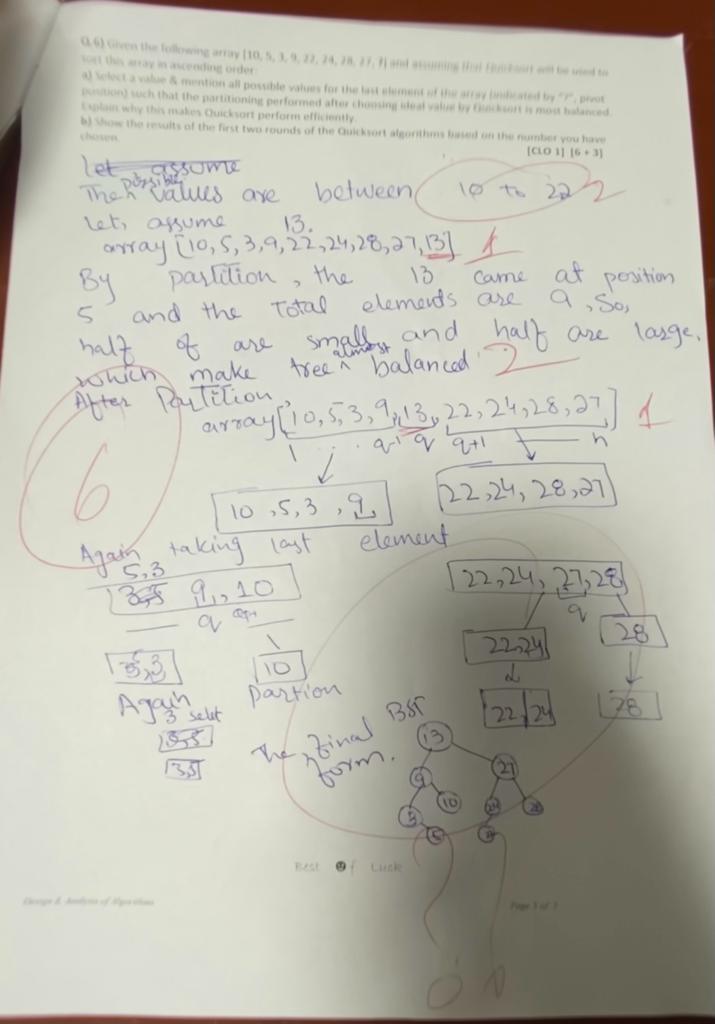 Q.6) Given the following array [10, 5, 3, 9, 22, 24, 28, 27, ?] and assuming that Quicksort will be used to
sort this array in ascending order:
a) Select a value & mention all possible values for the last element of the array (indicated by "?", pivot
position) such that the partitioning performed after choosing ideal value by Quicksort is most balanced.
Explain why this makes Quicksort perform efficiently.
b) Show the results of the first two rounds of the Quicksort algorithms based on the number you have
chosen.
[CLO 1] [6 + 3]
let assume
The possible values are between 10 to 22 2
Let, assume 13.
array [10, 5, 3, 9, 22, 24, 28, 27, 13] 1
By partition, the 13 came at position
5 and the Total elements are 9, So,
half of are small and half are large.
which make tree almost balanced 2
After Partition,
array[10, 5, 3, 9, 13, 22, 24, 28, 27] 1
1 ... q-1 q q+1 n
6
10, 5, 3, 9 22, 24, 28, 27
Again taking last element
5, 3
9, 10 22, 24, 27, 28
q q
22, 24 28
3 10
Again Partion
22 24 28
3 selet
3,5
The final BST
form.
13
9 27
10
3
5
Best Of Luck
Design & Analysis of Algorithms Page 3 of 3